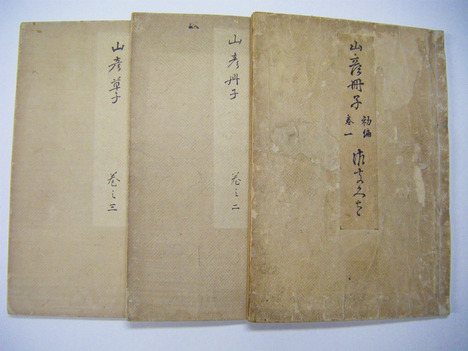 山彦冊子
初編
巻一
山彦冊子
巻之二
山彦草子
巻之三